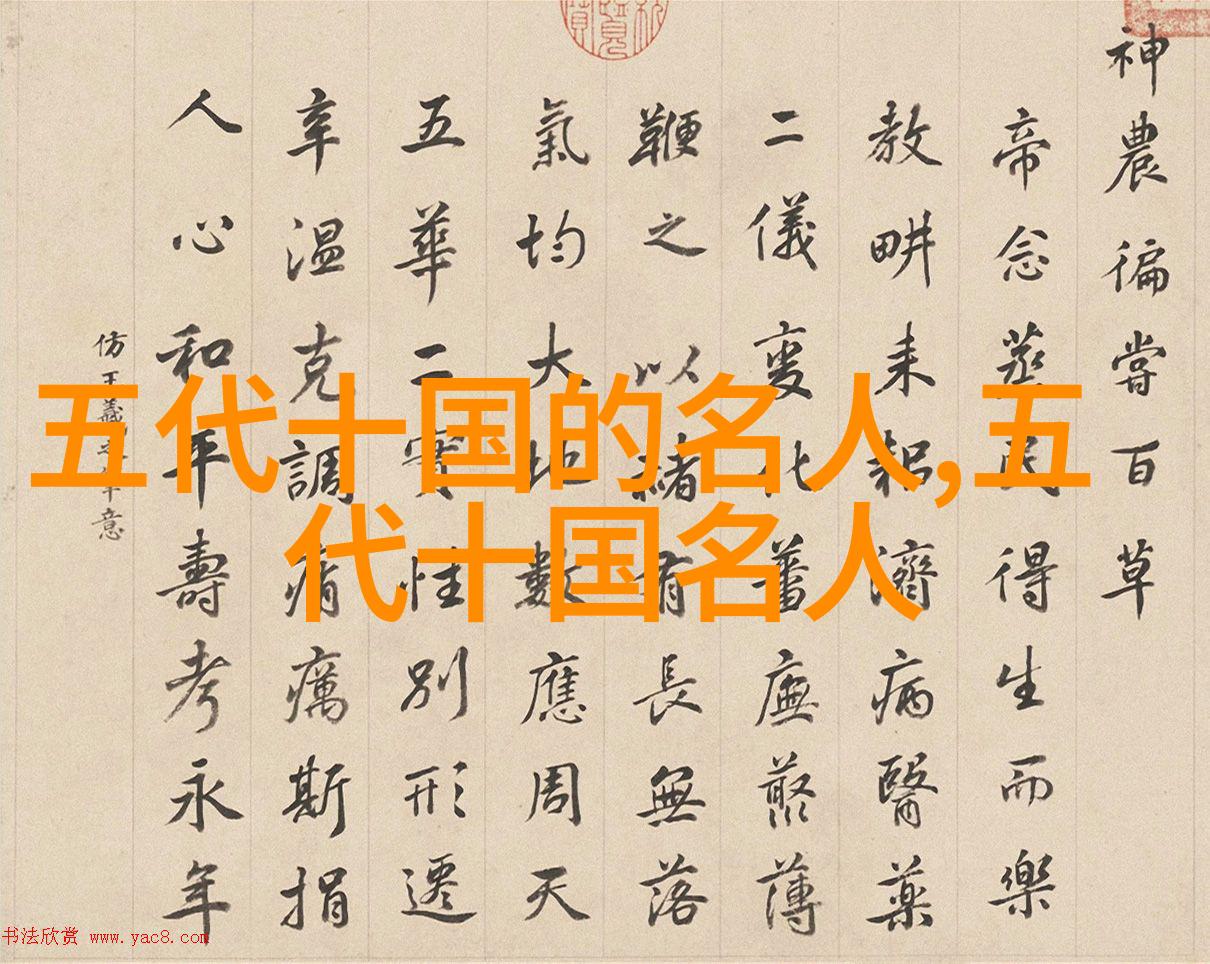 神農徧嘗百草
帝念蒸民得生而樂
教畊耒耜濟病醫藥
二儀變化蕃廡叢薄
鞭之以緒有長無落
氣均大地數應周天
五華二實性別形遷
辛温克調痟癘斯捐
人心和平壽考永年
仿王羲之意
五代十国的名人,五
代十国名人
书法欣赏 www.yac8.com